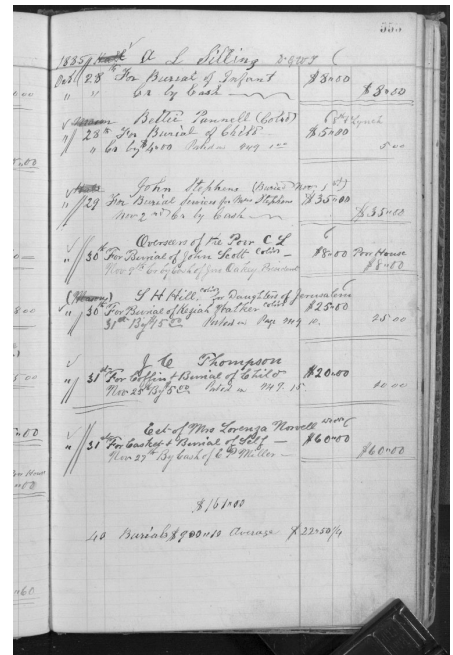 333
1885 A L Silling
Oct 28 For Burial of Infant $8.00
" " Cr by Cash $8.00
Bettie Pannell (Cold)
" 28th For Burial of Child $5.00
" Cr by $4.00 Posted on 5.00
John Stephens (Buried Nov. 1st)
" 29 For Burial Services for John Stephens $35.00
Nov 2nd Cr by Cash $35.00
Overseers of the Poor C L
" 30th For Burial of John Scott Cold $8.00 Poor House
Nov Cr by Cash of Jas Oakey President $8.00
S H Hill, for Daughters of Jerusalem
" 30th For Burial of Keziah Walker $25.00
31st By $15.00 Posted on Page 25.00
J C Thompson
" 31st For Coffin & Burial of Child $20.00
Nov 28th By 5.00 Posted on
Est of Mrs Lorenza Norvell
" 31st For Casket & Burial of Self $60.00
Nov 27th By Cash of Miller $60.00
$161.00
40 Burials $900.10 Average $22.50/4